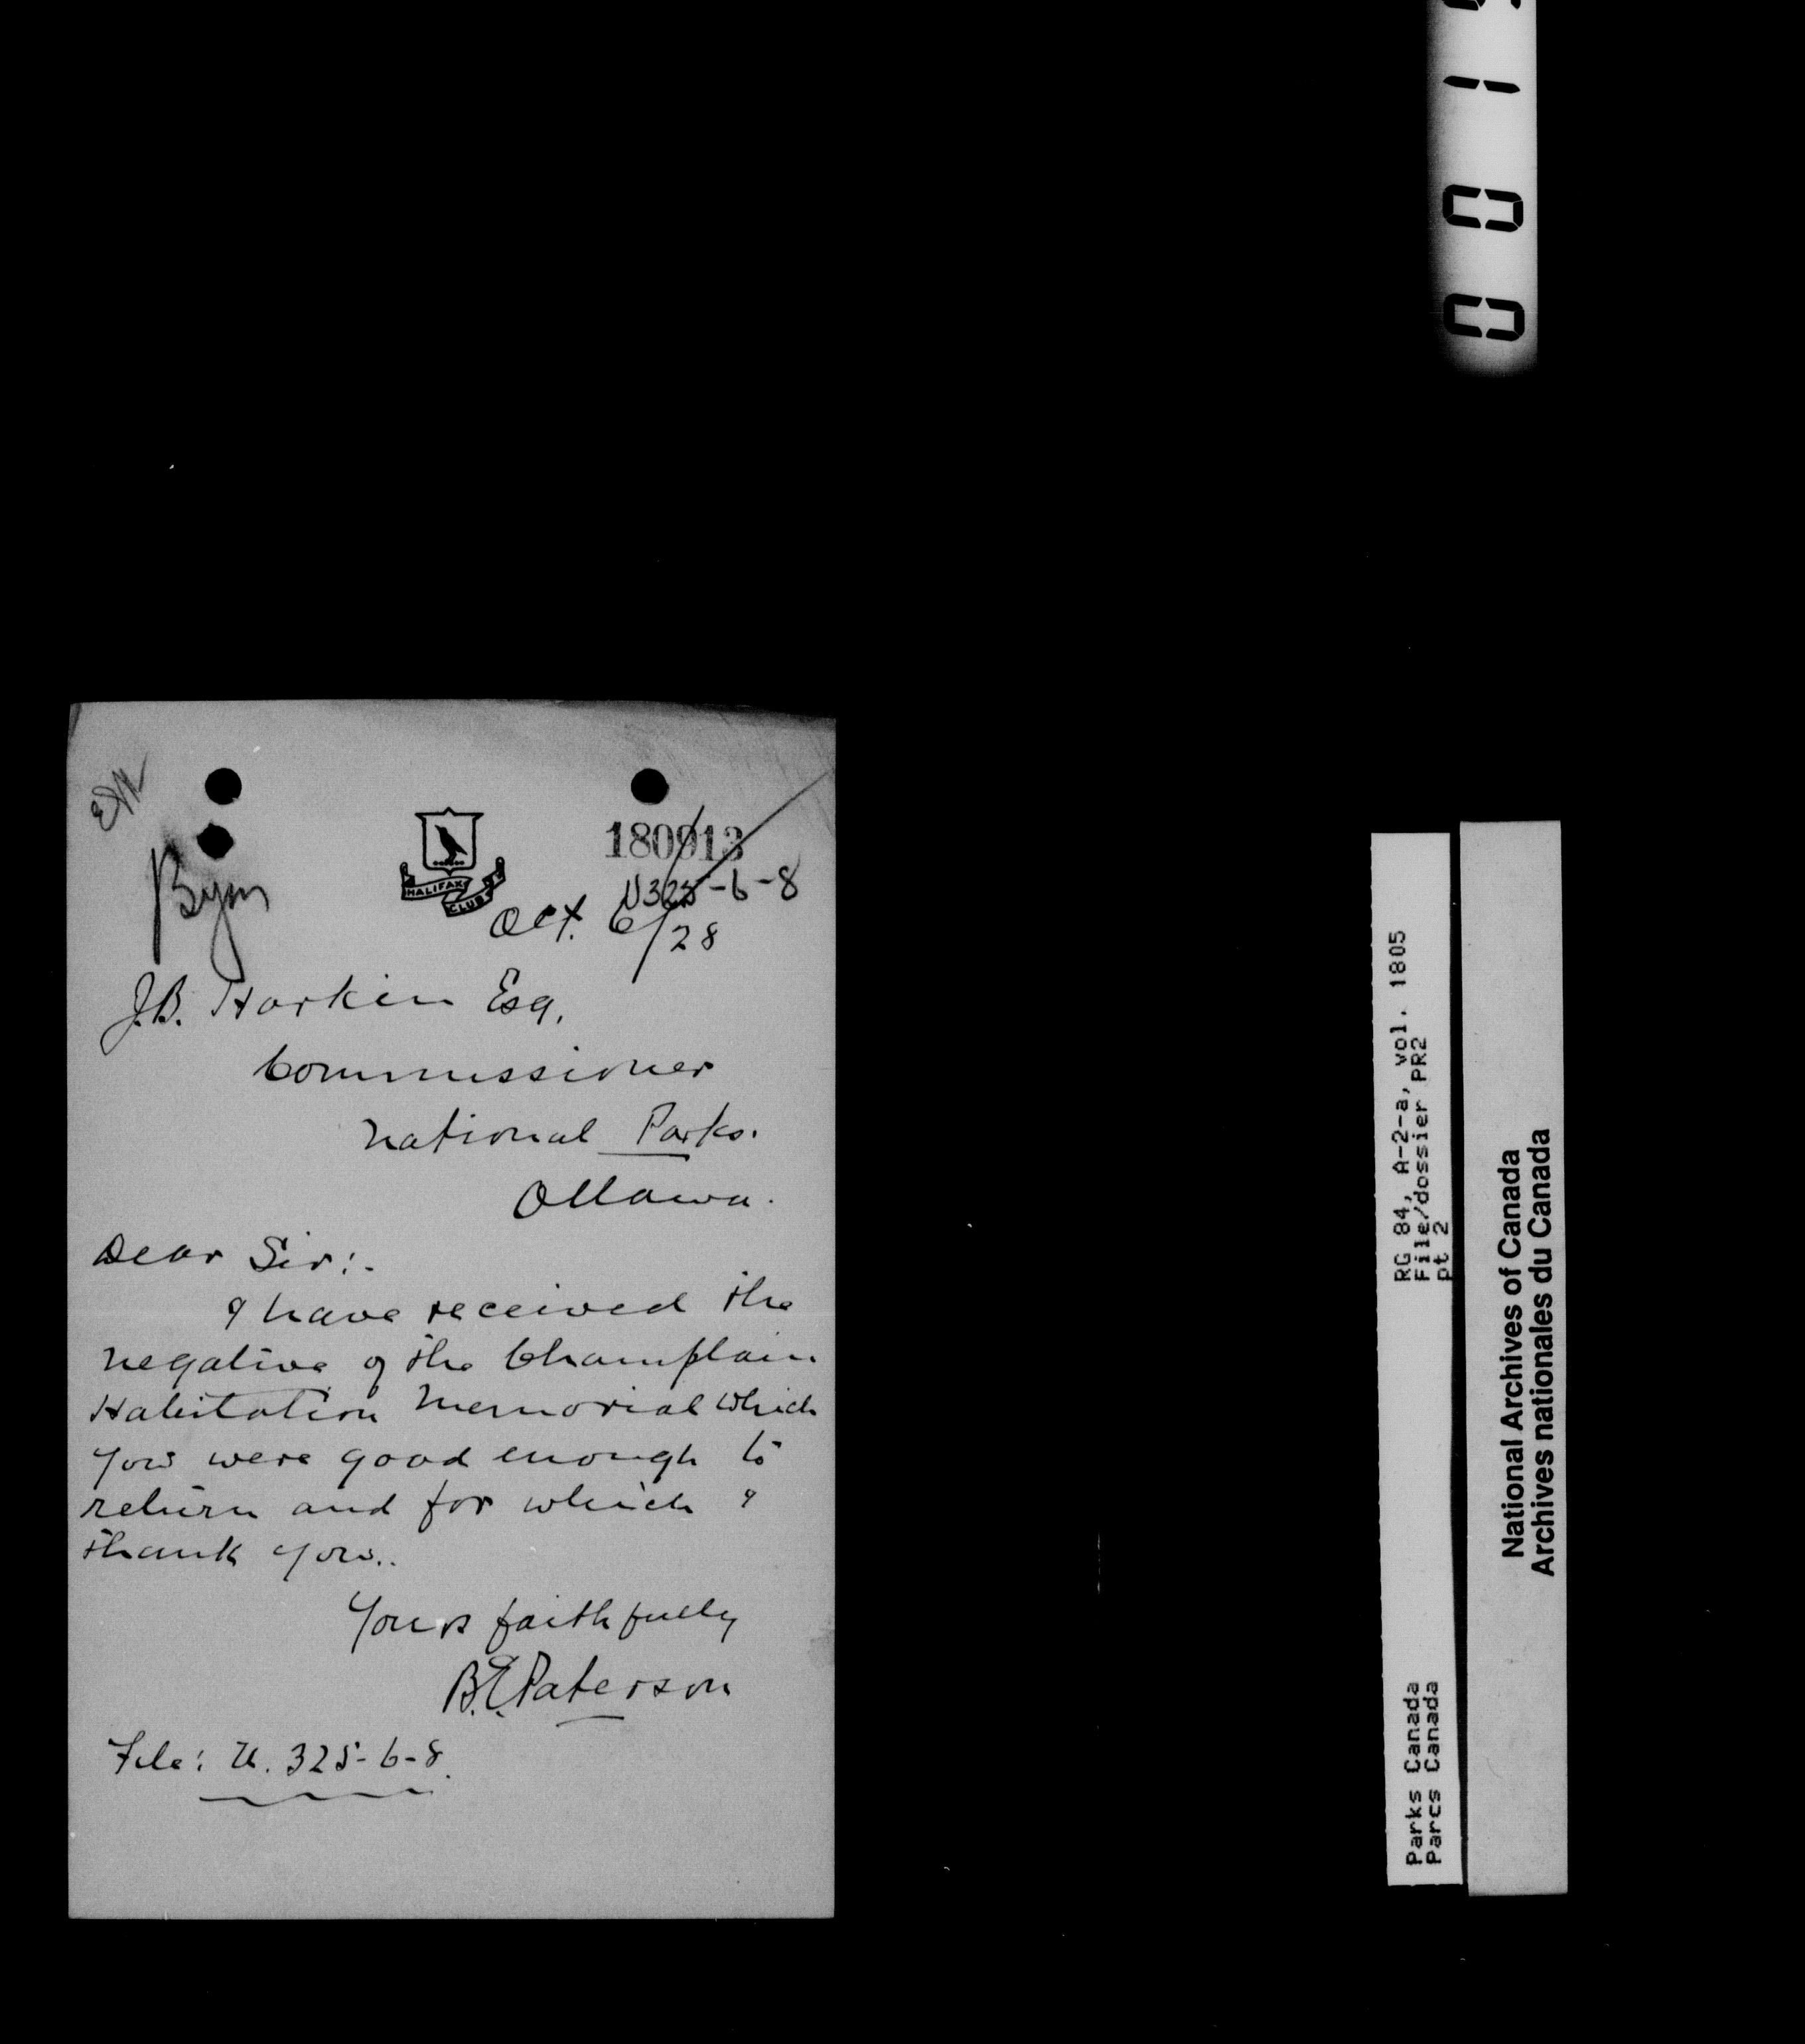 180913
U325-6-8
HALIFAX
CLUB
Oct. 6/28
J.B. Harkin Esq,
Commissioner
National Parks.
Ottawa.
Dear Sir:-
I have received the
negative of the Champlain
Habitation Memorial which
you were good enough to
return and for which I
thank you..
Yours faithfully
B.E. Paterson
File: U. 325-6-8.
RG 84, A-2-a, vol. 1805
File/dossier PR2
pt 2
Parks Canada
Parcs Canada
National Archives of Canada
Archives nationales du Canada